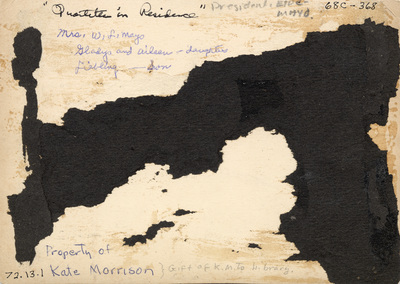 "Quartiter in Residence" President's
68C-368
Mrs. W. L. Mayo
Gladys and Aileen - daughters
Liebling — son
Property of
72.13.1 Kate Morrison } Gift of K.M. to Library.